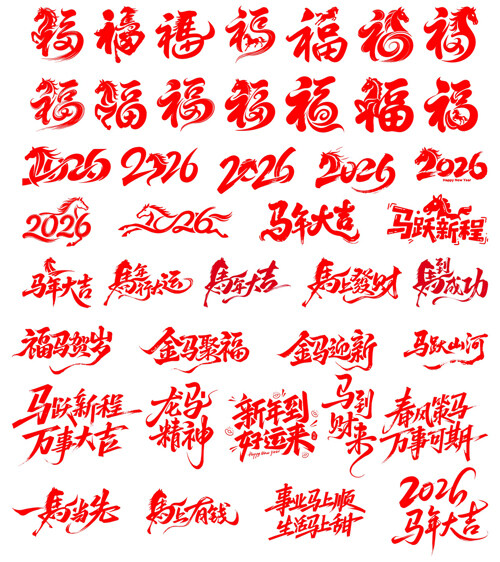 福 福 福 福 福 福 福
福 福 福 福 福 福 福
2026 2026 2026 2026 2026
Happy New Year
2026 2026 马年大吉 马跃新程
马年大吉 馬年行大运 馬年大吉 馬上發財 馬到成功
福马贺岁 金马聚福 金马迎新 马跃山河
马跃新程
万事大吉
龙马
精神
新年到
好运来
Happy New Year
马到
财来
春风策马
万事可期
一馬当先 馬上有钱
事业马上顺
生活马上甜
2026
马年大吉